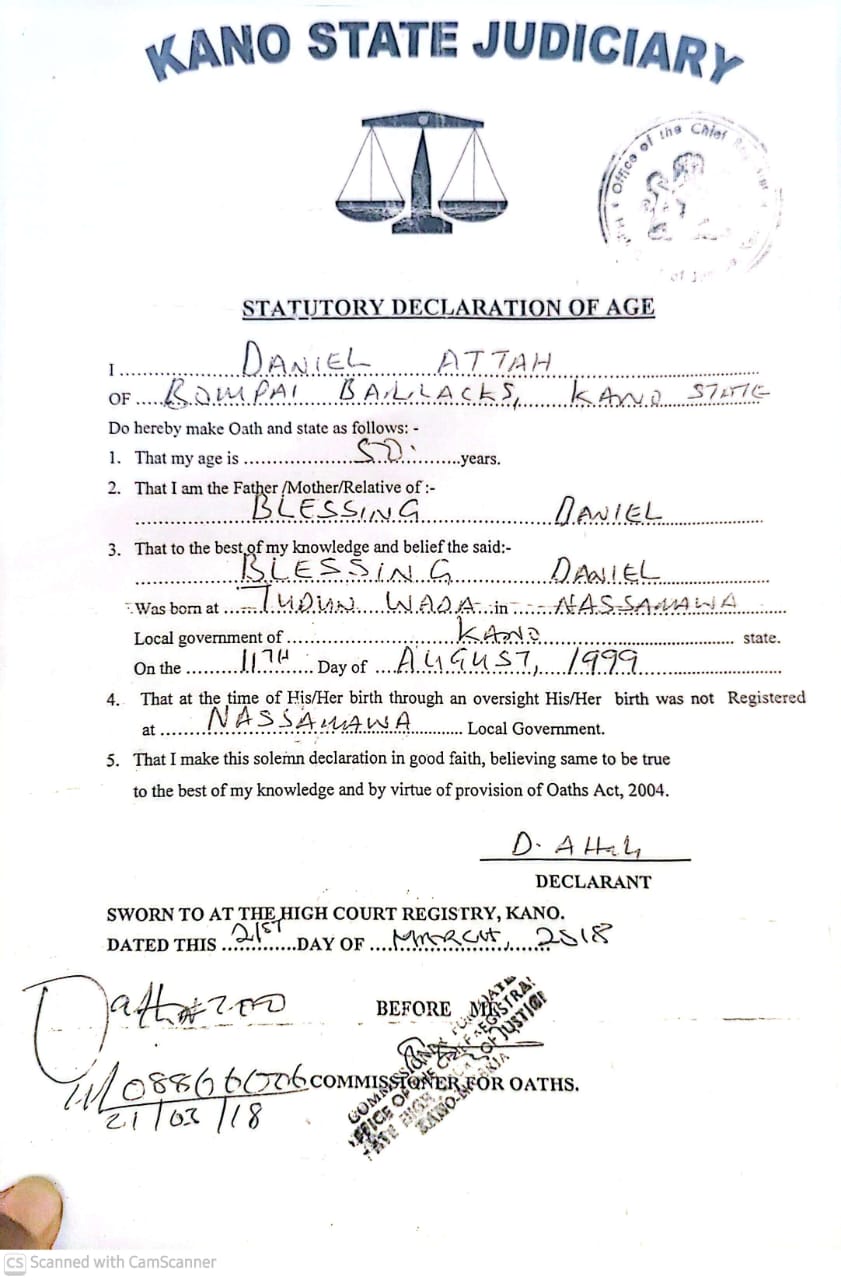 KANO STATE JUDICIARY
Office of the Chief
STATUTORY DECLARATION OF AGE
I ........ DANIEL ATTAH ........
OF .... BOMPAI BARRACKS, KANO STATE
Do hereby make Oath and state as follows: -
1. That my age is ........ 50 ........ years.
2. That I am the Father /Mother/Relative of :-
BLESSING DANIEL
3. That to the best of my knowledge and belief the said:-
BLESSING DANIEL
Was born at .... TUDUN WADA .... in .... NASSARAWA ....
Local government of ........ KANO ........ state.
On the ........ 11TH .... Day of .... AUGUST, 1999 ........
4. That at the time of His/Her birth through an oversight His/Her birth was not Registered
at ........ NASSARAWA ........ Local Government.
5. That I make this solemn declaration in good faith, believing same to be true
to the best of my knowledge and by virtue of provision of Oaths Act, 2004.
D. Attah
DECLARANT
SWORN TO AT THE HIGH COURT REGISTRY, KANO.
DATED THIS .... 21ST .... DAY OF .... MARCH, 2018
BEFORE ME
COMMISSIONER FOR OATHS.
21/03/18
COMMISSIONER FOR OATH
OFFICE OF THE CHIEF REGISTRAR
STATE HIGH COURT OF JUSTICE
KANO-NIGERIA
CS Scanned with CamScanner